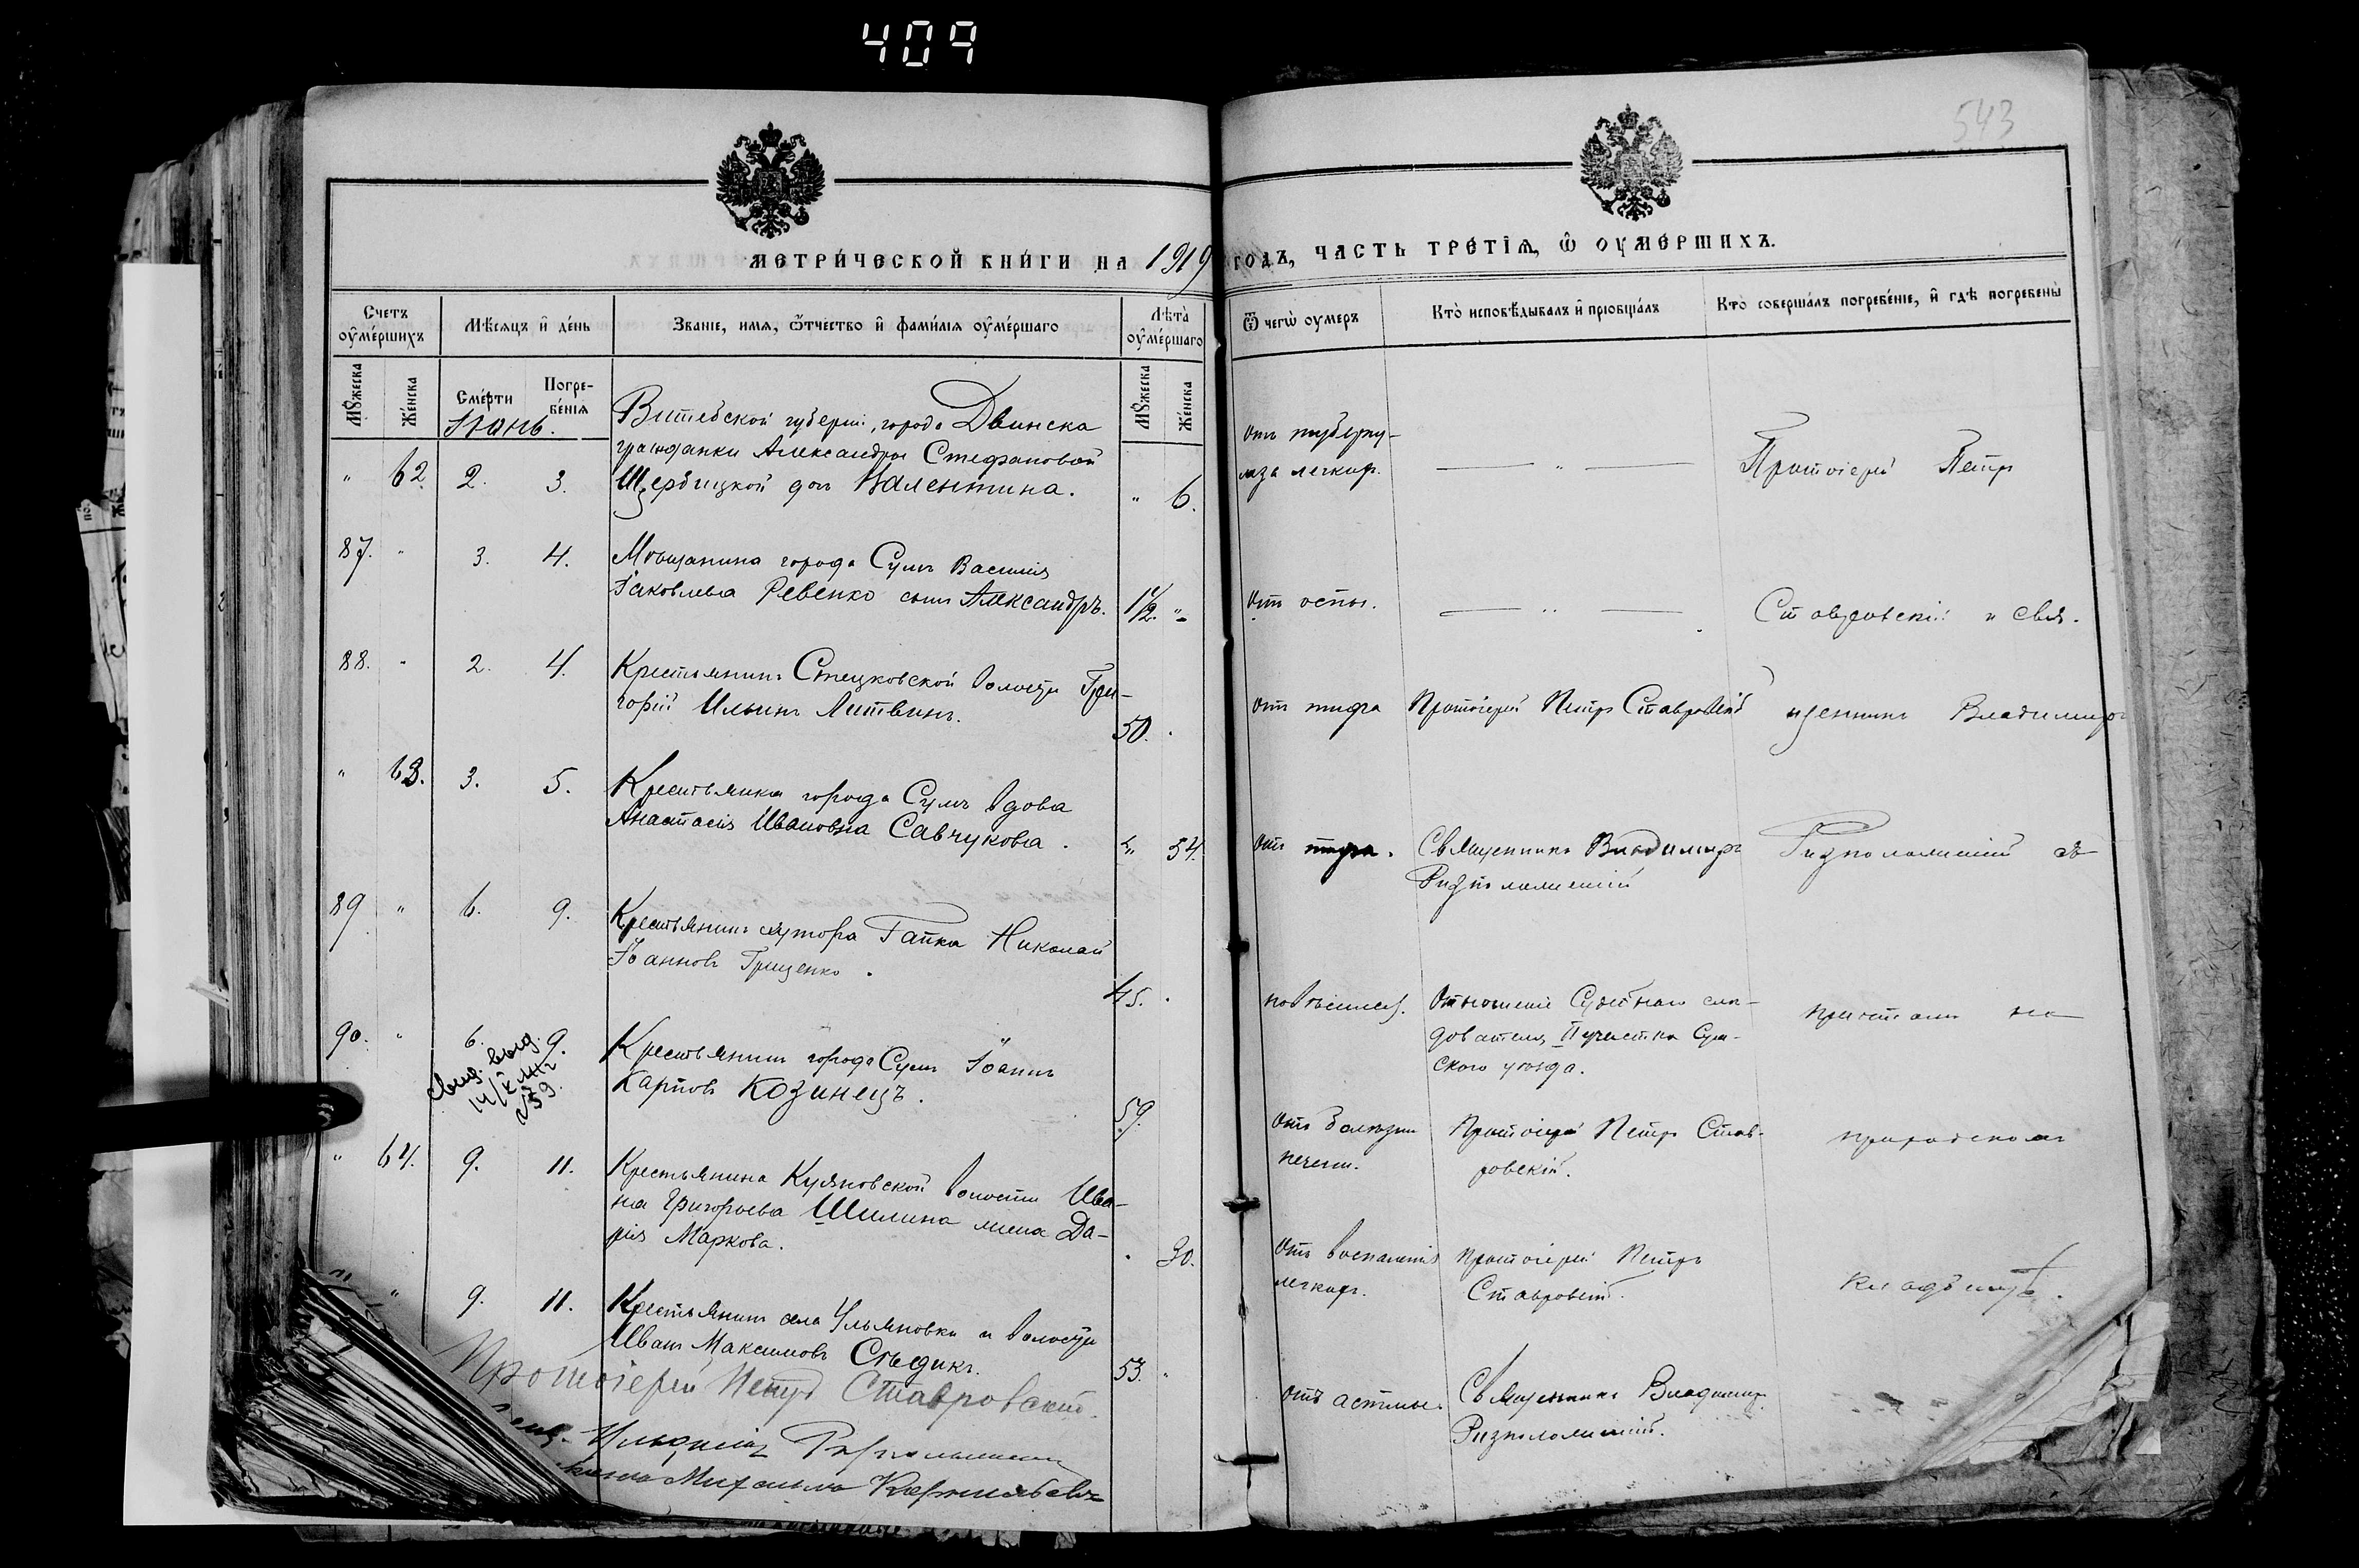 409
543
МЕТРИЧЕСКОЙ КНИГИ НА 1919 ГОДЪ, ЧАСТЬ ТРЕТІЯ, Ѿ ОУМЕРШИХЪ.
Счетъ оумершихъ
Мѣсяцъ и день
Званіе, имя, ѿтчество и фамилія оумершаго
Лѣта оумершаго
Ѿ чегѡ оумеръ
Кто исповѣдывалъ и пріобщалъ
Кто совершалъ погребеніе, и гдѣ погребены
Мужеска
Женска
Смерти
Погребенія
Мужеска
Женска
Іюнь.
Витебской губерніи, города Двинска
гражданки Александры Стефановой
" 62. 2. 3. Щербицкой дочь Валентина. " 6.
отъ туберку-
леза легкихъ.
— " —
Протоіерей Петръ
87. " 3. 4. Мѣщанина города Сумъ Василія
Іаковлева Ревенко сынъ Александръ. 1½. "
отъ оспы.
— " —
Ставровскій и свя-
88. " 2. 4. Крестьянинъ Стецковской волости Гри-
горій Ильинъ Литвинъ. 50.
отъ тифа
Протоіерей Петръ Ставровскій
щенникъ Владимиръ
" 63. 3. 5. Крестьянка города Сумъ вдова
Анастасія Ивановна Савчукова. " 54.
отъ тифа.
Священникъ Владимиръ
Ризположенскій
Ризположенскій съ
89 " 6. 9. Крестьянинъ хутора Гапка Николай
Іоанновъ Гриценко. 45.
повѣсился.
Отношеніе Судебнаго слѣ-
дователя II участка Сум-
скаго уѣзда.
причтомъ на
90. " 6. 9. Крестьянинъ города Сумъ Іоаннъ
Карповъ Козинецъ. 59.
свид. выд.
№ 59.
отъ болѣзни
печени.
Протоіерей Петръ Став-
ровскій.
приходскомъ
" 64. 9. 11. Крестьянина Куяновской волости Ива-
на Григорьева Шилина жена Да-
рія Маркова. 30.
отъ воспаленія
легкихъ.
Протоіерей Петръ
Ставровскій.
кладбищѣ.
" 9. 11. Крестьянинъ села Ульяновки и волости
Иванъ Максимовъ Сѣдикъ. 53.
отъ астмы.
Священникъ Владимиръ
Ризположенскій.
Протоіерей Петръ Ставровскій
Михаилъ